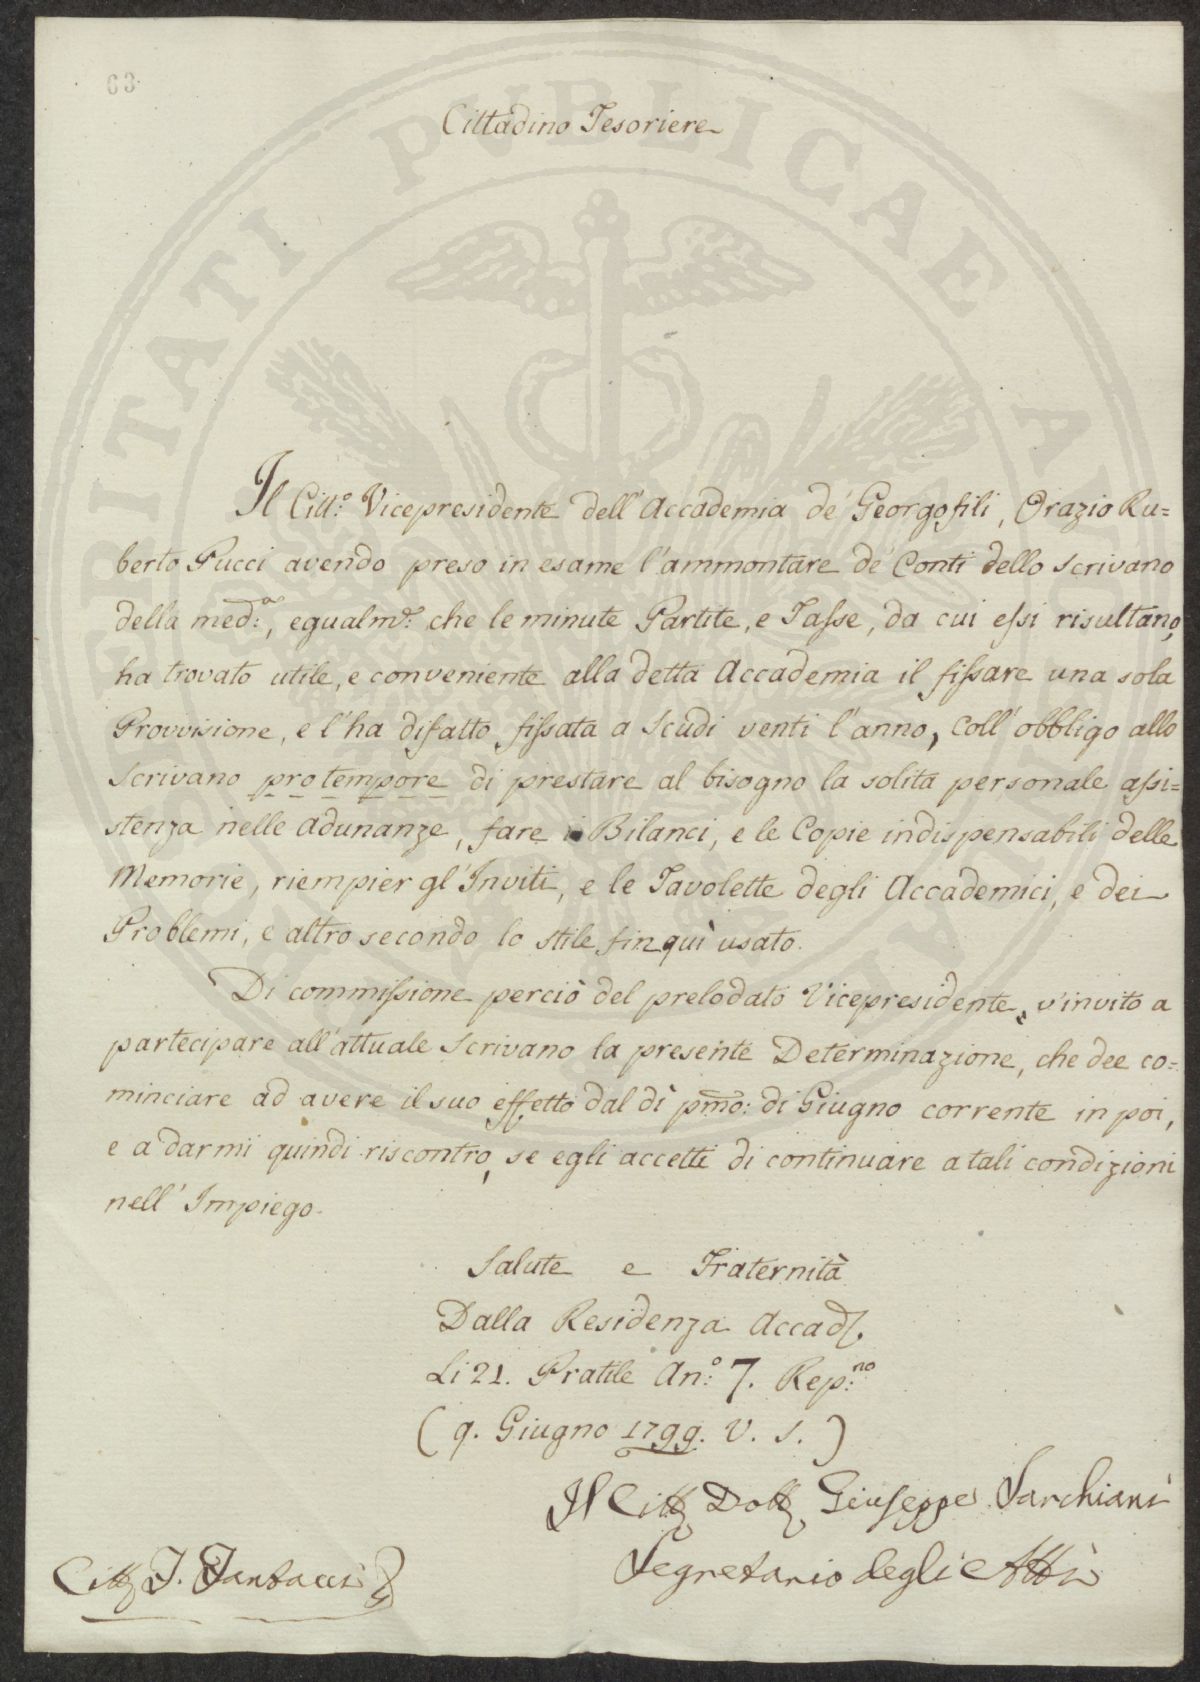 63.
Cittadino Tesoriere
Il Citt.º Vicepresidente dell'Accademia de' Georgofili, Orazio Ru=
berto Pucci avendo preso in esame l'ammontare de' Conti dello Scrivano
della med.ª, egualm.e che le minute Partite, e Tasse, da cui essi risultano,
ha trovato utile, e conveniente alla detta Accademia il fissare una sola
Provvisione, e l'ha difatto fissata a Scudi venti l'anno, coll'obbligo allo
Scrivano pro tempore di prestare al bisogno la solita personale assi=
stenza nelle Adunanze, fare i Bilanci, e le Copie indispensabili delle
Memorie, riempier gl'Inviti, e le Tavolette degli Accademici, e dei
Problemi, e altro secondo lo stile fin quì usato.
Di commissione perciò del prelodato Vicepresidente, v'invito a
partecipare all'attuale Scrivano la presente Determinazione, che dee co=
minciare ad avere il suo effetto dal dì pmo: di Giugno corrente in poi,
e a darmi quindi riscontro, se egli accetti di continuare a tali condizioni
nell'Impiego.
Salute e Fraternità
Dalla Residenza Accad.
Li 21. Pratile An.º 7. Rep.no
(9. Giugno 1799. V. S.)
Il Citt. Dott. Giuseppe Sarchiani
Segretario degli Atti
Citt. Tantacci
PUBLICAE